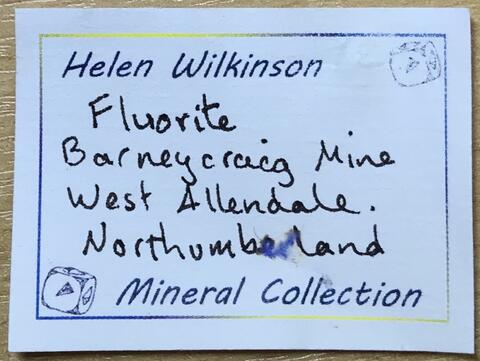 Helen Wilkinson
Fluorite
Barneycraig Mine
West Allendale.
Northumberland
Mineral Collection